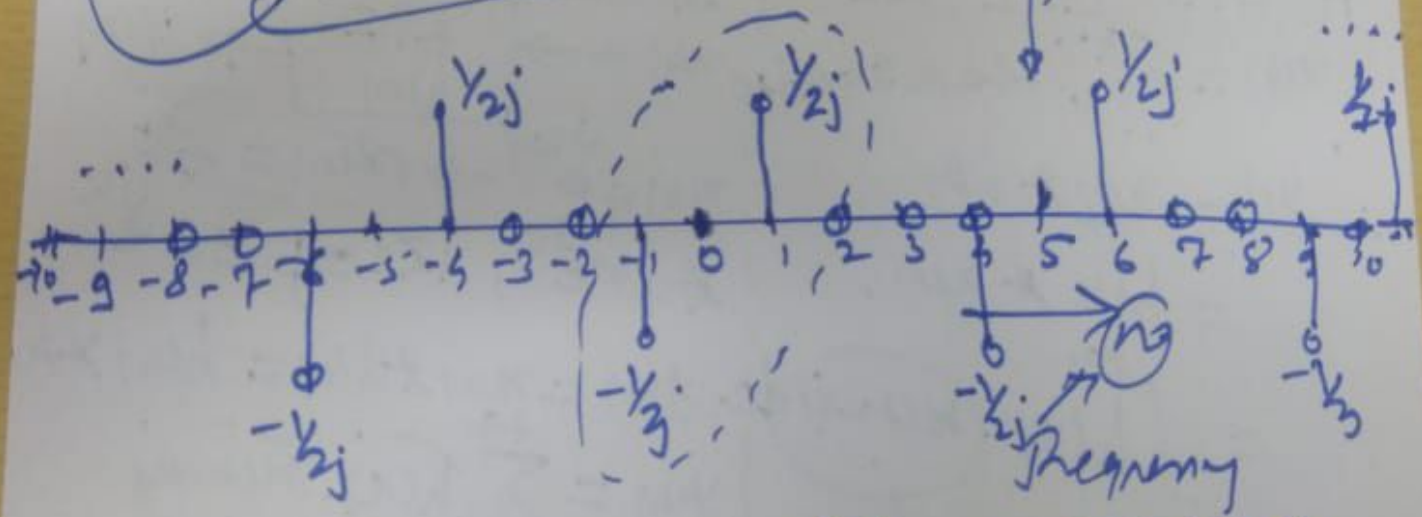 ....
1/2j 1/2j 1/2j 1/2j
....
-10 -9 -8 -7 -6 -5 -4 -3 -2 -1 0 1 2 3 4 5 6 7 8 9 10
-1/2j -1/2j -1/2j
n
frequency